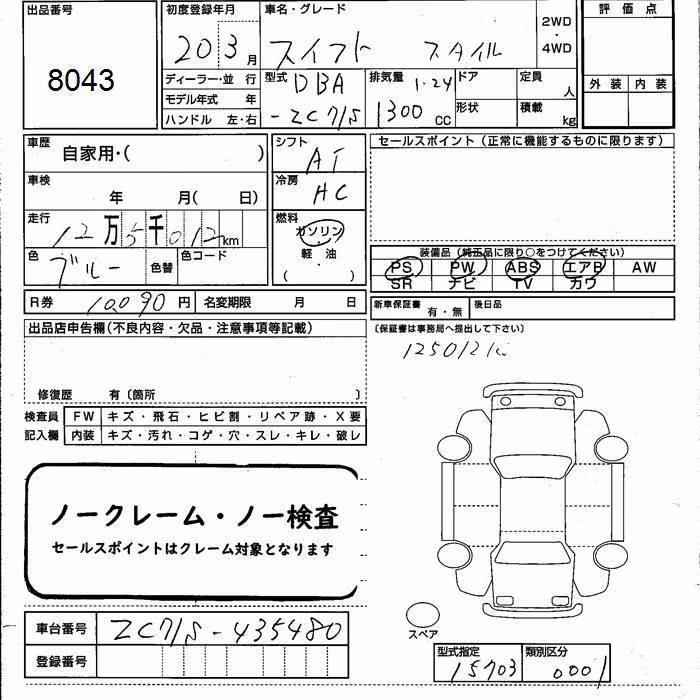 出品番号 初度登録年月 車名・グレード 2WD ・ 4WD 評価点
8043 20 3月 スイフト スタイル
ディーラー・並行 型式 DBA 排気量 1.24 ドア 定員 人 外装 内装
モデル年式 年
ハンドル 左・右 -ZC71S 1300CC 形状 積載 kg
車歴 自家用・( ) シフト AT セールスポイント(正常に機能するものに限ります)
車検 年 月( 日) 冷房 AC
走行 12万5千012km 燃料 ガソリン・軽・油 ( )
色 ブルー 色替 色コード
装備品(純正品に限り○をつけてください)
PS PW ABS エアB AW
SR ナビ TV カワ
R券 10,090円 名変期限 月 日 新車保証書 有・無 後日品
出品店申告欄(不良内容・欠品・注意事項等記載) (保証書は事務局へ提出して下さい)
125012K
修復歴 有〔箇所 〕
検査員 FW キズ・飛石・ヒビ割・リペア跡・X要
記入欄 内装 キズ・汚れ・コゲ・穴・スレ・キレ・破レ
ノークレーム・ノー検査
セールスポイントはクレーム対象となります
車台番号 ZC71S-435480
スペア
登録番号
型式指定 15703 類別区分 0001